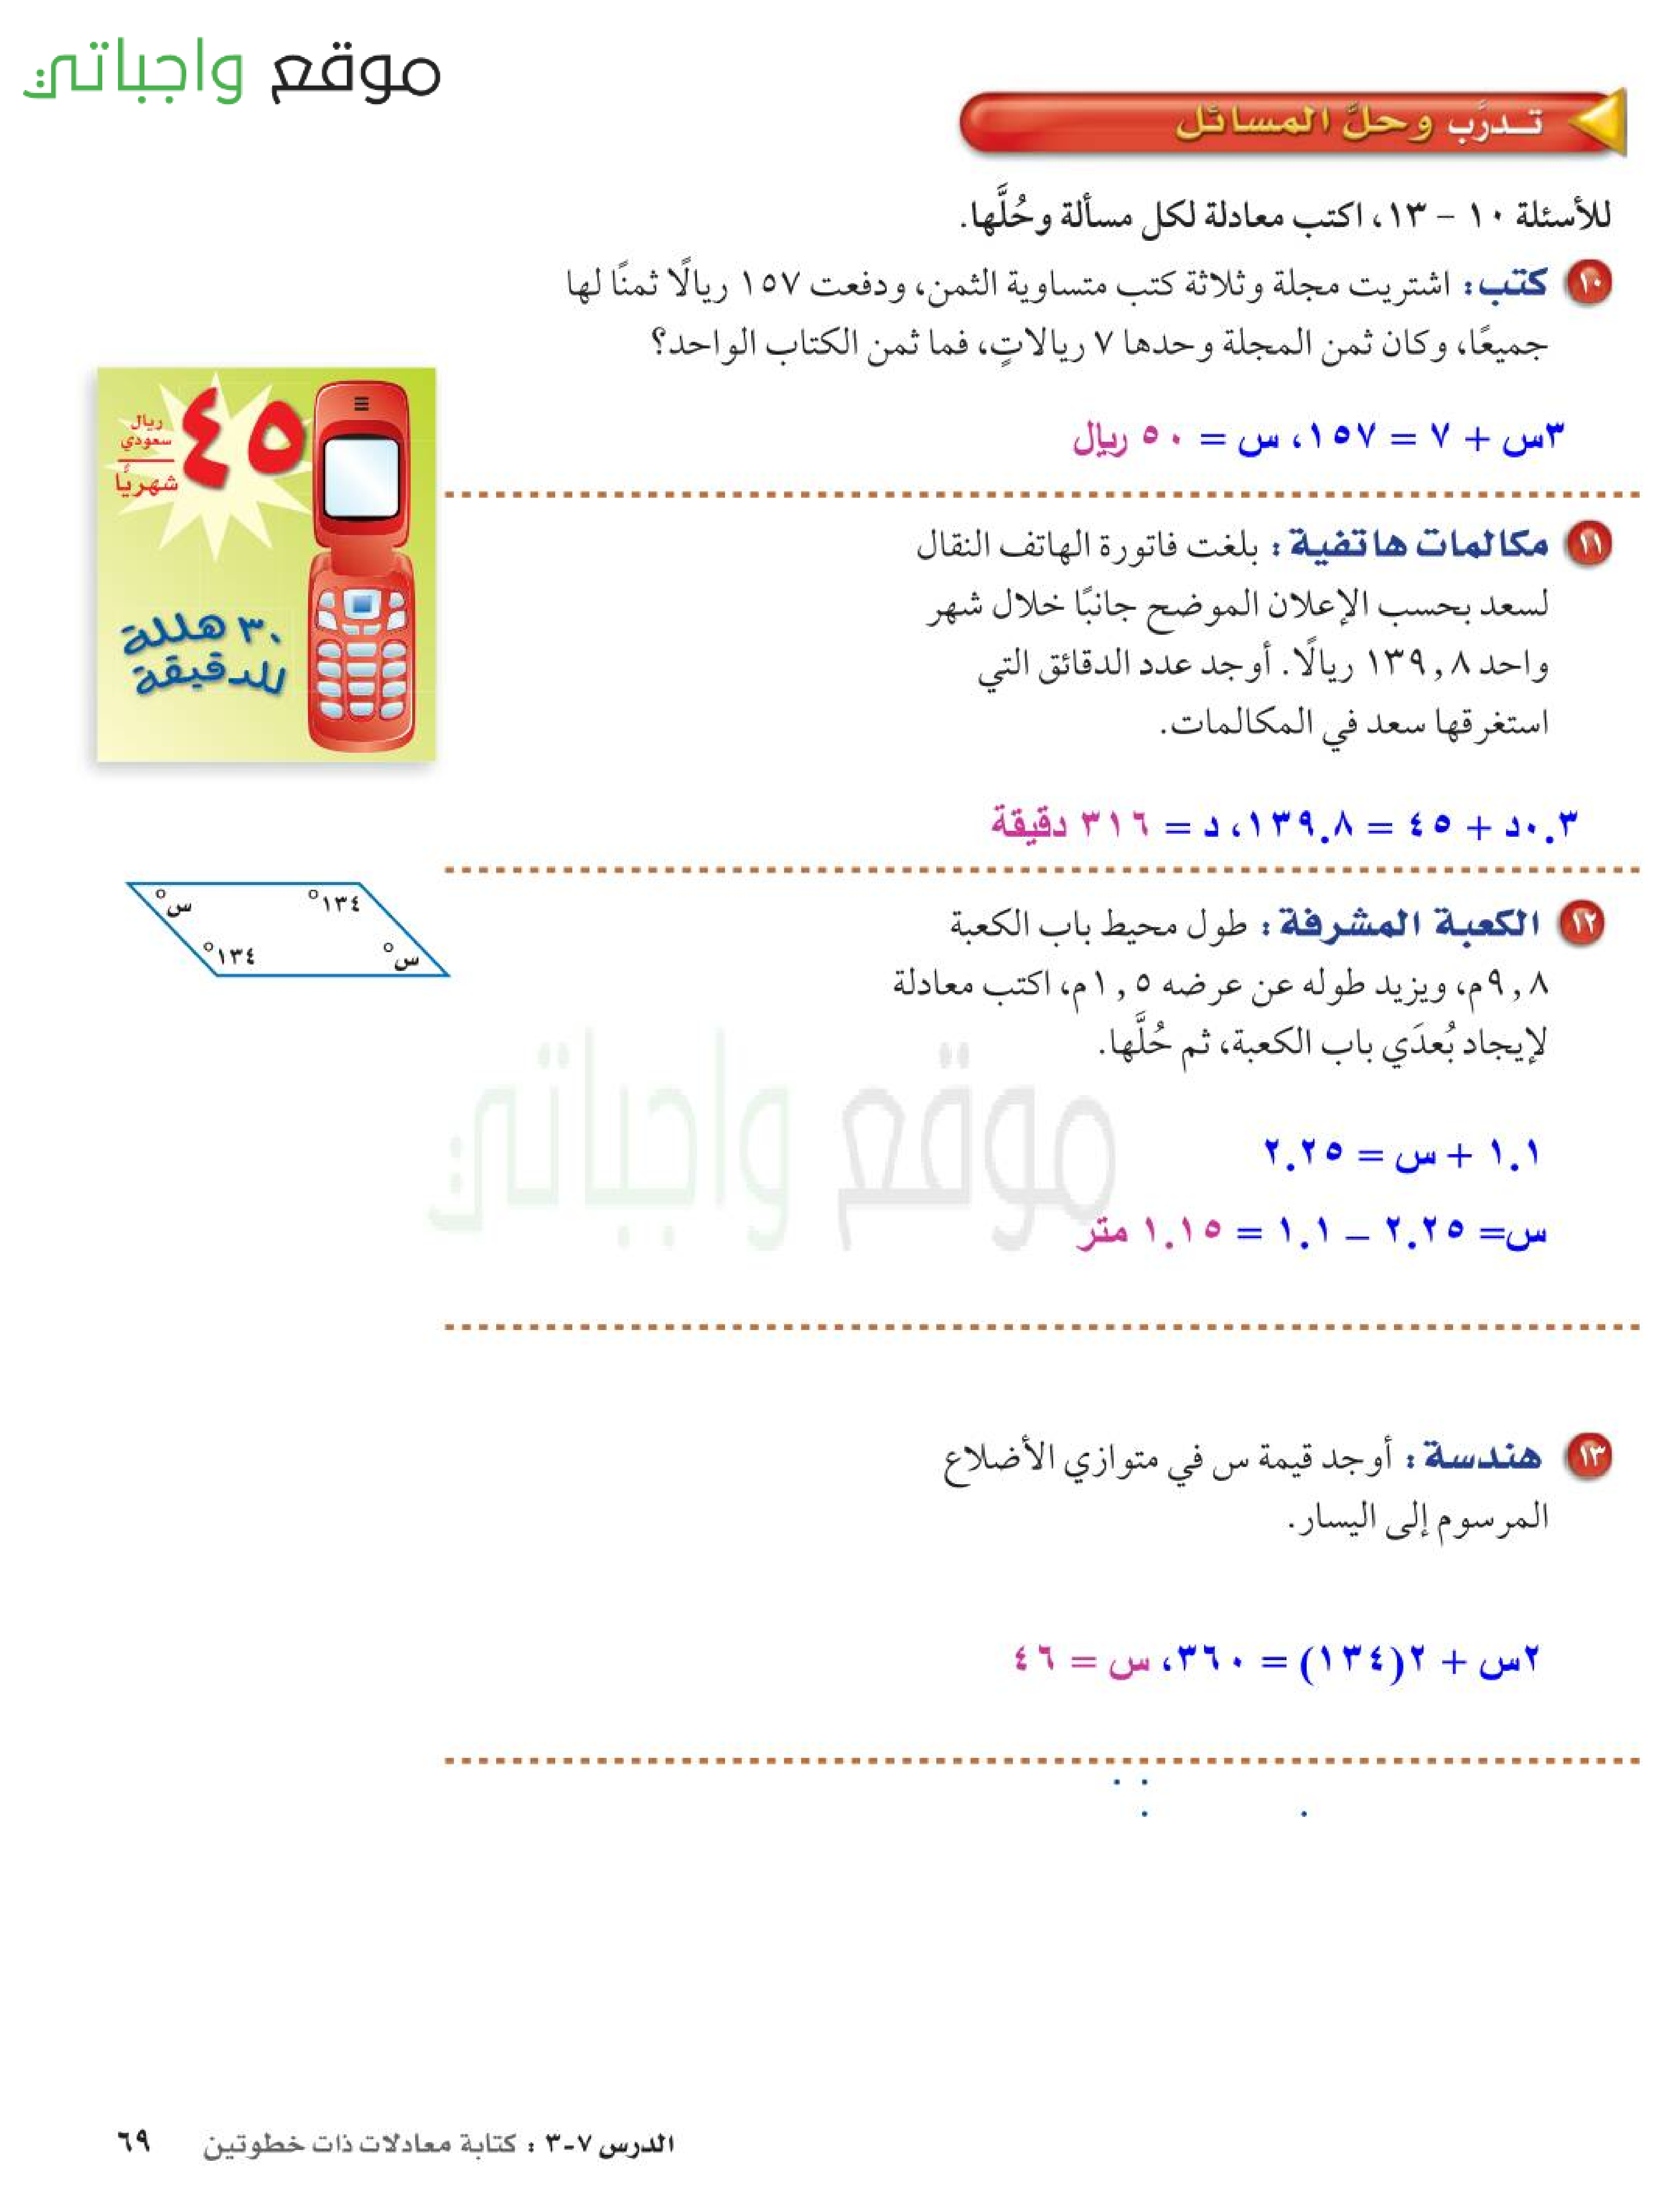 موقع واجباتي
تـدرَّب وحلَّ المسائل
للأسئلة ١٠ – ١٣، اكتب معادلة لكل مسألة وحُلَّها.
١٠ كتب: اشتريت مجلة وثلاثة كتب متساوية الثمن، ودفعت ١٥٧ ريالًا ثمنًا لها
جميعًا، وكان ثمن المجلة وحدها ٧ ريالاتٍ، فما ثمن الكتاب الواحد؟
٣س + ٧ = ١٥٧، س = ٥٠ ريال
٤٥
ريال
سعودي
شهريًّا
٣٠ هللة
للدقيقة
١١ مكالمات هاتفية: بلغت فاتورة الهاتف النقال
لسعد بحسب الإعلان الموضح جانبًا خلال شهر
واحد ١٣٩,٨ ريالًا. أوجد عدد الدقائق التي
استغرقها سعد في المكالمات.
٠.٣د + ٤٥ = ١٣٩.٨، د = ٣١٦ دقيقة
١٢ الكعبة المشرفة: طول محيط باب الكعبة
٩,٨م، ويزيد طوله عن عرضه ١,٥م، اكتب معادلة
لإيجاد بُعدَي باب الكعبة، ثم حُلَّها.
س° ١٣٤°
١٣٤° س°
موقع واجباتي
١.١ + س = ٢.٢٥
س= ٢.٢٥ – ١.١ = ١.١٥ متر
١٣ هندسة: أوجد قيمة س في متوازي الأضلاع
المرسوم إلى اليسار.
٢س + ٢(١٣٤) = ٣٦٠، س = ٤٦
الدرس ٧-٣ : كتابة معادلات ذات خطوتين ٦٩